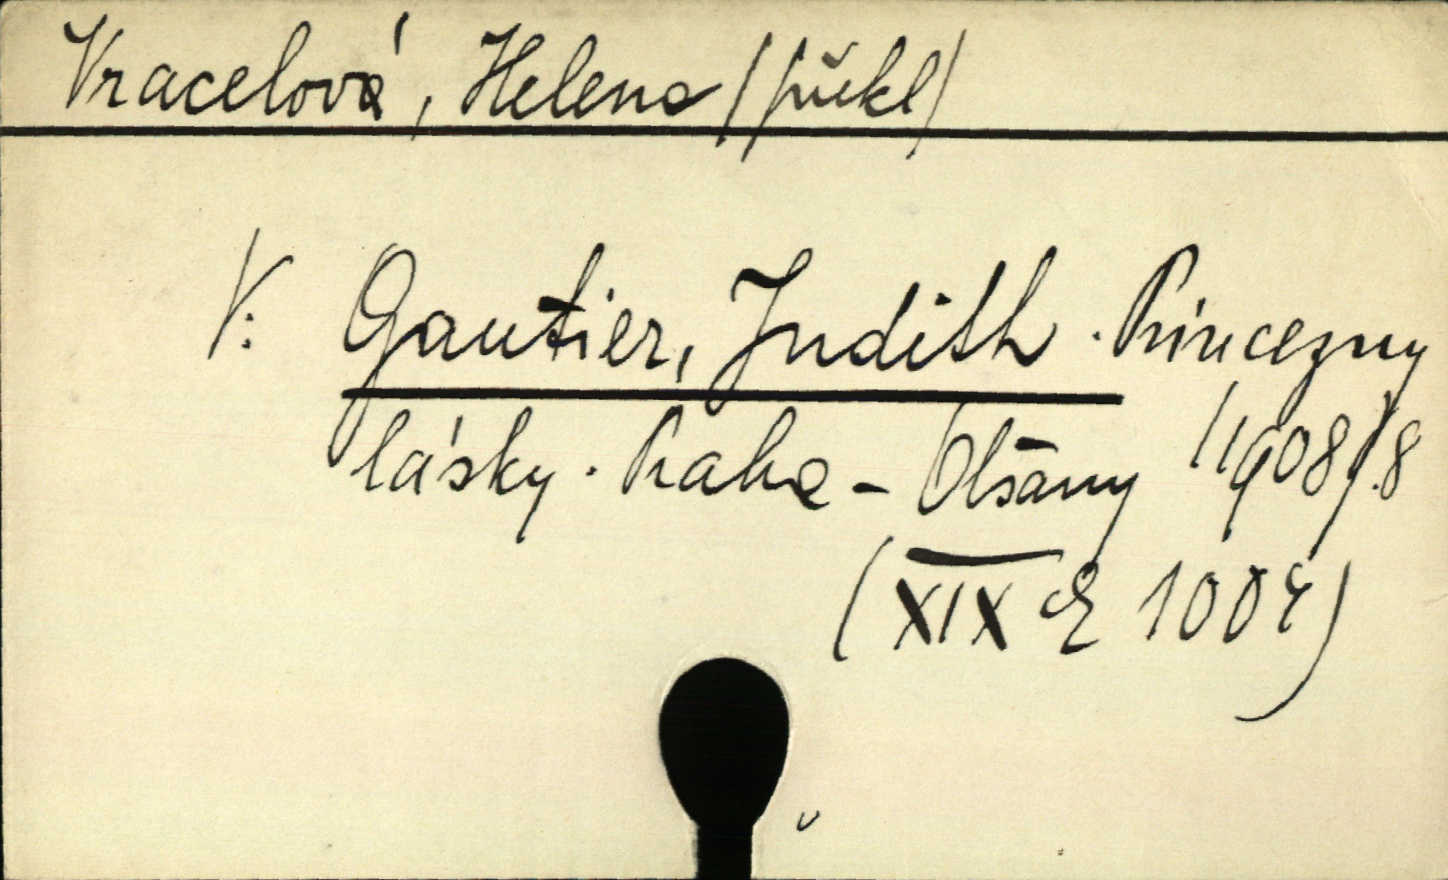 Vracelová, Helena /překl/
V: Gautier, Judith. Princezny
lásky. Praha - Olšany /1908/. 8
(XIX E 1004)